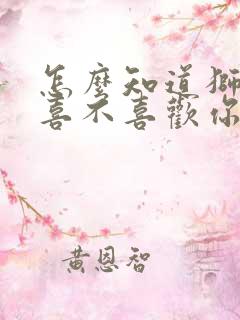 怎麼知道獅
喜不喜歡你
黃恩智